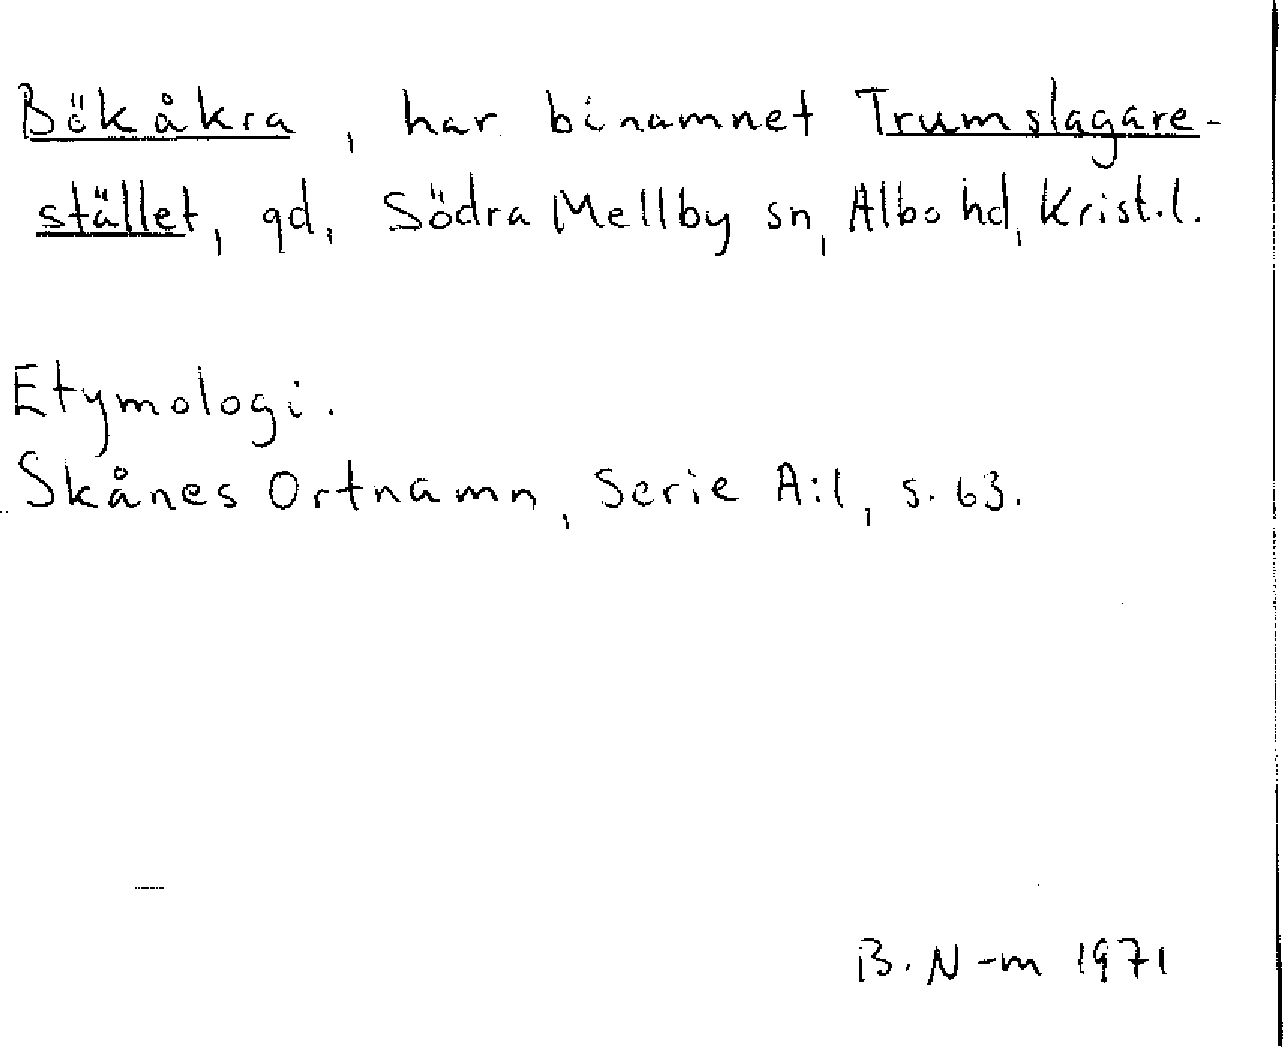 Bökåkra, har binamnet Trumslagare-
stället, gd, Södra Mellby sn, Albo hd, Krist.l.
Etymologi.
Skånes Ortnamn, Serie A:1, s. 63.
B. N-m 1971